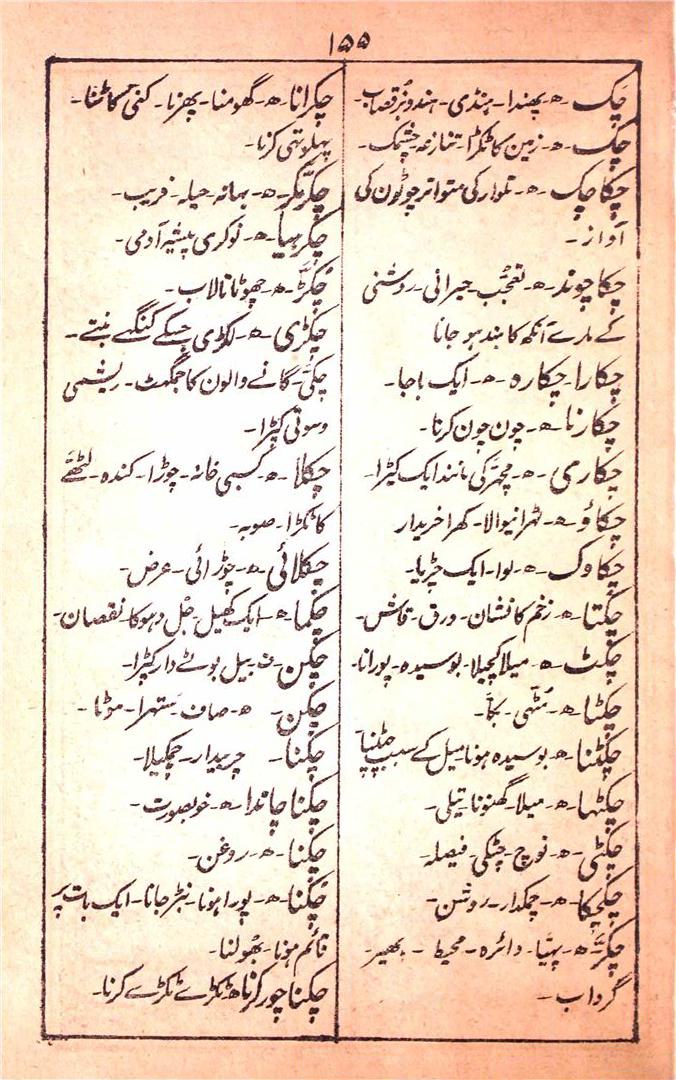 ۱۵۵
چک -ھ- پھندا- ہنڈی- ہندو بُز قصاب-
چک -ھ- زمین کا ٹکڑا- تنازعہ- چشمک-
چکا چک -ھ- تلوار کی متواتر چوٹون کی
آواز-
چکا چوند -ھ- تعجب- حیرانی- روشنی
کے مارے آنکھ کا بند ہو جانا
چکارا- چکارہ -ھ- ایک باجا-
چکارنا -ھ- چون چون کرنا-
چکاری -ھ- مچھر کی مانند ایک کیڑا-
چکاؤ -ھ- ٹہرانیوالا- کھرا خریدار
چکاوک -ھ- لوا- ایک چڑیا-
چکتا -ھ- زخم کا نشان- ورق- قاش-
چکٹ -ھ- میلا کچیلا- بوسیدہ- پورانا-
چکٹا -ھ- مُٹھی- بکّا-
چکٹنا -ھ- بوسیدہ ہونا میل کے سبب چٹپنا
چکٹھا -ھ- میلا- گھنونا- تیلی-
چکٹی -ھ- نوچ- چٹکی- فیصلہ-
چکچکا -ھ- چمکدار- روشن-
چکّر -ھ- پہیّا- دائرہ- محیط- پھیر-
گرداب-
چکرانا -ھ- گھومنا- پھرنا- کنّی کاٹنا-
پہلو تہی کرنا-
چکر مکر -ھ- بہانہ- حیلہ- فریب-
چکرہیا -ھ- نوکری پیشہ آدمی-
چکڑ -ھ- چھوٹا تالاب-
چکڑی -ھ- لکڑی جسکے کنگھے بنتے-
چکی- گانے والون کا جمگھٹ- ریشمی
و سوتی کپڑا-
چکلا -ھ- کسبی خانہ- چوڑا- کندہ- لٹھے
کا ٹکڑا- صوبہ-
چکلائی -ھ- چوڑائی- عرض-
چکما -ھ- ایک کھیل- جُل- دہوکا- نقصان-
چکن -ف- بیل بوٹے دار کپڑا-
چکن -ھ- صاف- ستہرا- موٹا-
چکنا- چربیدار- چمکیلا-
چکنا چاندا -ھ- خوبصورت-
چکنا -ھ- روغن-
چُکنا -ھ- پورا ہونا- نبڑ جانا- ایک بات پر
قائم ہونا- بھولنا-
چکنا چور کرنا -ھ- ٹکڑے ٹکڑے کرنا-